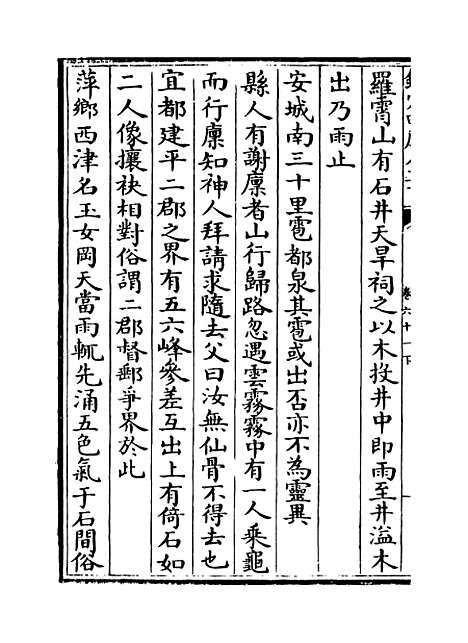 卷六十一下
羅霄山有石井天旱祠之以木投井中即雨至井溢木
出乃雨止
安城南三十里雹都泉其雹或出否亦不為靈異
縣人有謝廩者山行歸路忽遇雲霧霧中有一人乘龜
而行廩知神人拜請求隨去父曰汝無仙骨不得去也
宜都建平二郡之界有五六峰參差互出上有倚石如
二人像攘袂相對俗謂二郡督郵爭界於此
萍鄉西津名玉女岡天當雨輒先涌五色氣于石間俗